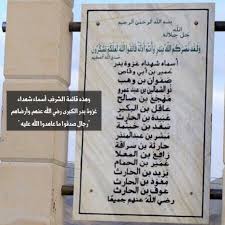 بسم الله الرحمن الرحيم
الله
جل جلاله
ولقد نصركم الله ببدر وأنتم أذلة فاتقوا الله لعلكم تشكرون
أسماء شهداء غزوة بدر
عمير بن أبي وقاص
صفوان بن وهب
ذو الشمالين بن عبد عمرو
مهجع بن صالح
عاقل بن البكير
عبيدة بن الحارث
سعد بن خيثمة
مبشر بن عبد المنذر
حارثة بن سراقة
رافع بن المعلا
عمير بن الحمام
يزيد بن الحارث
معوذ بن الحارث
عوف بن الحارث
رضي الله عنهم جميعا
وهذه قائمة الشرف أسماء شهداء
غزوة بدر الكبرى رضي الله عنهم وأرضاهم
"رجال صدقوا ما عاهدوا الله عليه"